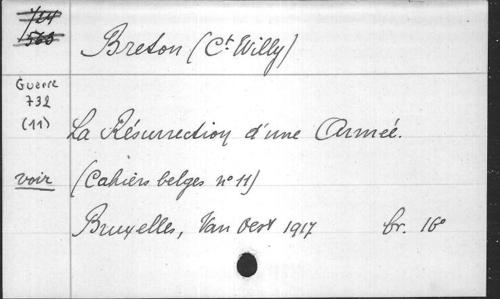 Breton (Ct. Willy)
Guerre
732
(11)
La Résurrection d'une Armée.
voir
(Cahiers belges n° 11)
Bruxelles, Van Oest 1917 br. 16°